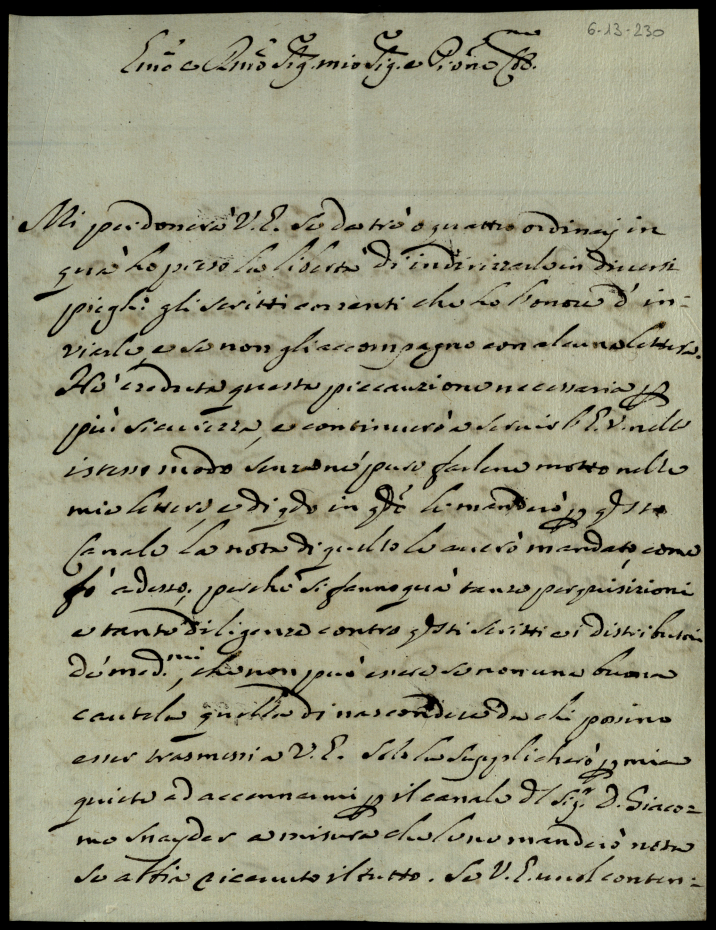 6-13-230
Emo e Rmo Sig. mio Sig. e Prone
Mi perdonerà V. E. se da trè o quattro ordinarj in
quà hò preso la libertà di indirizzarle in diversi
pieghi gli scritti correnti che hò l'onore d'in=
viarle, e se non gli accompagno con alcuna lettera.
Hò creduta questa precauzione necessaria p
più sicurezza, e continuerò a servir l'E. V. nelle
istesso modo senza nè pure farlene motto nelle
mie lettere e di qdo in qdo le manderò p qsto
Canale la nota di quello le averò mandato, come
fò adesso; perche si fanno quà tante perquisizioni
e tante diligenze contro qsti scritti e i distributori
de' med.mi, che non può essere se non una buona
cautela quella di nascondere da chi possino
esser trasmessi a V. E. Solo la supplicherò p mia
quiete ad accennarmi p il canale dl Sigr. D. Giaco=
mo Snayder a misura che le ne manderò nota
se abbia ricevuto il tutto. Se V. E. vuol conten=